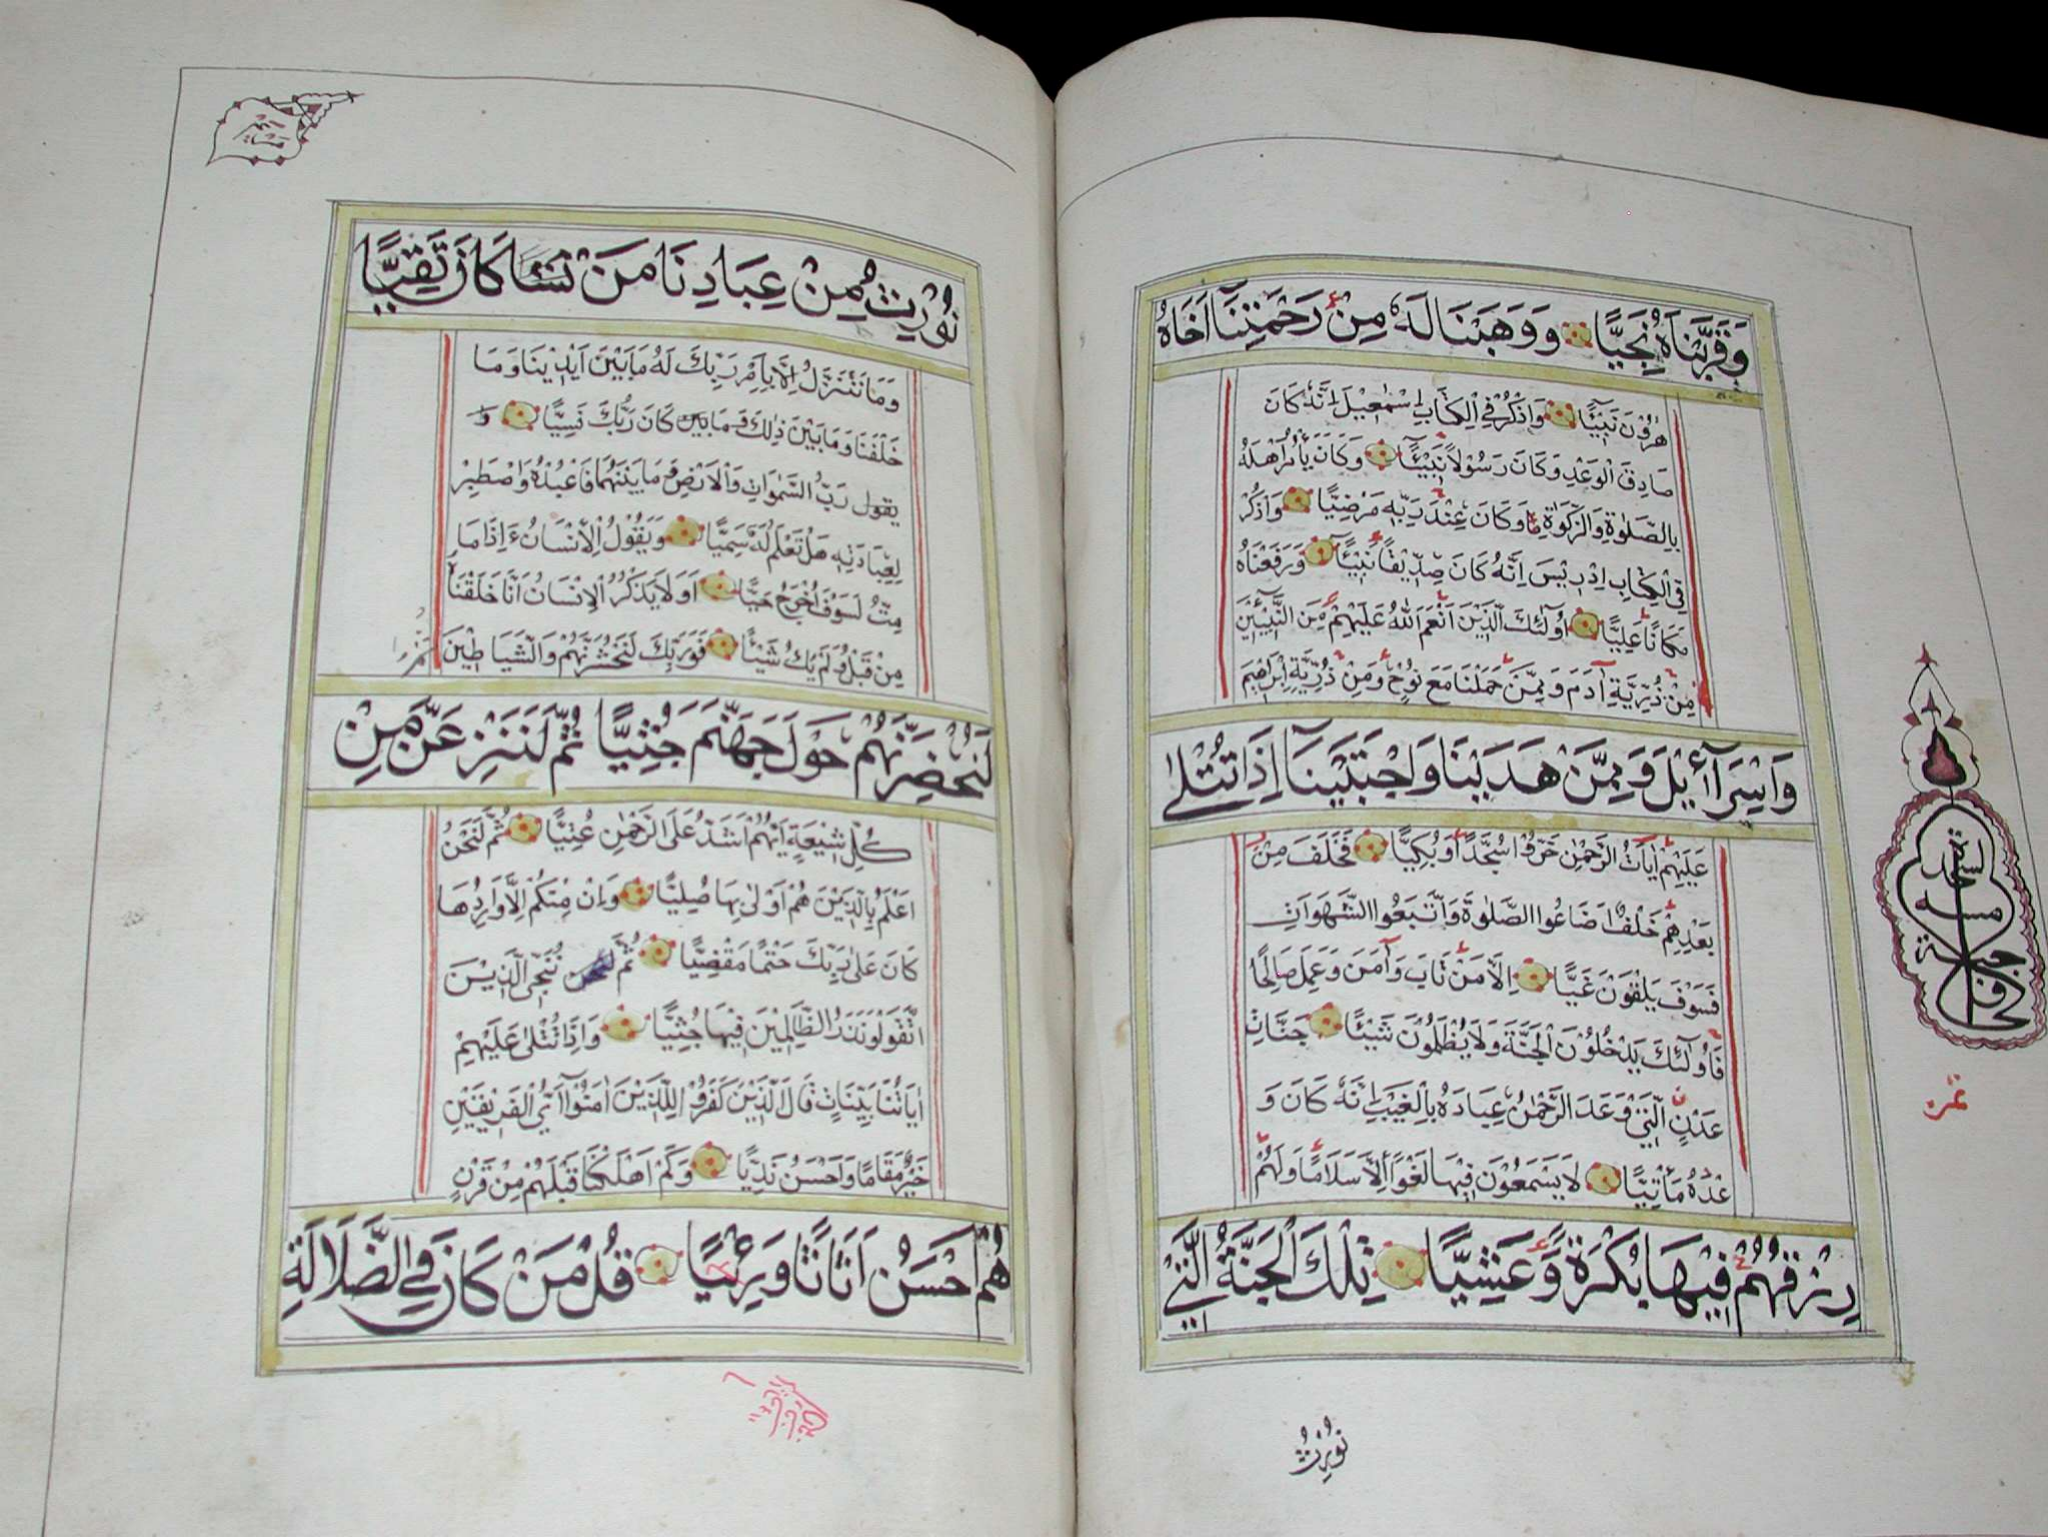 وَقَرَّبْنَاهُ نَجِيًّا وَوَهَبْنَا لَهُ مِنْ رَحْمَتِنَآ اَخَاهُ
هٰرُوْنَ نَبِيًّا وَاذْكُرْ فِي الْكِتَابِ اِسْمٰعِيْلَ اِنَّهُ كَانَ
صَادِقَ الْوَعْدِ وَكَانَ رَسُوْلًا نَبِيًّا وَكَانَ يَأْمُرُ اَهْلَهُ
بِالصَّلٰوةِ وَالزَّكٰوةِ وَكَانَ عِنْدَ رَبِّهِ مَرْضِيًّا وَاذْكُرْ
فِي الْكِتَابِ اِدْرِيْسَ اِنَّهُ كَانَ صِدِّيْقًا نَبِيًّا وَرَفَعْنَاهُ
مَكَانًا عَلِيًّا اُولٰٓئِكَ الَّذِيْنَ اَنْعَمَ اللّٰهُ عَلَيْهِمْ مِنَ النَّبِيّٖنَ
مِنْ ذُرِّيَّةِ آدَمَ وَمِمَّنْ حَمَلْنَا مَعَ نُوْحٍ وَمِنْ ذُرِّيَّةِ اِبْرَاهِيْمَ
وَاِسْرَآئِيْلَ وَمِمَّنْ هَدَيْنَا وَاجْتَبَيْنَآ اِذَا تُتْلٰى
عَلَيْهِمْ اٰيَاتُ الرَّحْمٰنِ خَرُّوْا سُجَّدًا وَبُكِيًّا فَخَلَفَ مِنْ
بَعْدِهِمْ خَلْفٌ اَضَاعُوا الصَّلٰوةَ وَاتَّبَعُوا الشَّهَوَاتِ
فَسَوْفَ يَلْقَوْنَ غَيًّا اِلَّا مَنْ تَابَ وَآمَنَ وَعَمِلَ صَالِحًا
فَاُولٰٓئِكَ يَدْخُلُوْنَ الْجَنَّةَ وَلَا يُظْلَمُوْنَ شَيْئًا جَنَّاتِ
عَدْنٍ الَّتِيْ وَعَدَ الرَّحْمٰنُ عِبَادَهُ بِالْغَيْبِ اِنَّهُ كَانَ وَ
عْدُهُ مَأْتِيًّا لَا يَسْمَعُوْنَ فِيْهَا لَغْوًا اِلَّا سَلَامًا وَلَهُمْ
رِزْقُهُمْ فِيْهَا بُكْرَةً وَعَشِيًّا تِلْكَ الْجَنَّةُ الَّتِيْ
نُوْرِثُ
نُوْرِثُ مِنْ عِبَادِنَا مَنْ نَشَا كَانَ تَقِيًّا
وَمَا نَتَنَزَّلُ اِلَّا بِاَمْرِ رَبِّكَ لَهُ مَا بَيْنَ اَيْدِيْنَا وَمَا
خَلْفَنَا وَمَا بَيْنَ ذٰلِكَ وَمَا كَانَ رَبُّكَ نَسِيًّا
رَبُّ السَّمٰوَاتِ وَالْاَرْضِ وَمَا بَيْنَهُمَا فَاعْبُدْهُ وَاصْطَبِرْ
لِعِبَادَتِهِ هَلْ تَعْلَمُ لَهُ سَمِيًّا وَيَقُوْلُ الْاِنْسَانُ ءَاِذَا مَا
مِتُّ لَسَوْفَ اُخْرَجُ حَيًّا اَوَلَا يَذْكُرُ الْاِنْسَانُ اَنَّا خَلَقْنَاهُ
مِنْ قَبْلُ وَلَمْ يَكُ شَيْئًا فَوَرَبِّكَ لَنَحْشُرَنَّهُمْ وَالشَّيَاطِيْنَ ثُمَّ
لَنُحْضِرَنَّهُمْ حَوْلَ جَهَنَّمَ جُثِيًّا ثُمَّ لَنَنْزِعَنَّ مِنْ
كُلِّ شِيْعَةٍ اَيُّهُمْ اَشَدُّ عَلَى الرَّحْمٰنِ عُتِيًّا ثُمَّ لَنَحْنُ
اَعْلَمُ بِالَّذِيْنَ هُمْ اَوْلٰى بِهَا صُلِيًّا وَاِنْ مِنْكُمْ اِلَّا وَارِدُهَا
كَانَ عَلٰى رَبِّكَ حَتْمًا مَقْضِيًّا ثُمَّ نُنَجِّي الَّذِيْنَ
اتَّقَوْا وَنَذَرُ الظَّالِمِيْنَ فِيْهَا جُثِيًّا وَاِذَا تُتْلٰى عَلَيْهِمْ
اٰيَاتُنَا بَيِّنَاتٍ قَالَ الَّذِيْنَ كَفَرُوْا لِلَّذِيْنَ اٰمَنُوْٓا اَيُّ الْفَرِيْقَيْنِ
خَيْرٌ مَقَامًا وَاَحْسَنُ نَدِيًّا وَكَمْ اَهْلَكْنَا قَبْلَهُمْ مِنْ قَرْنٍ
هُمْ اَحْسَنُ اَثَاثًا وَرِئْيًا قُلْ مَنْ كَانَ فِي الضَّلَالَةِ